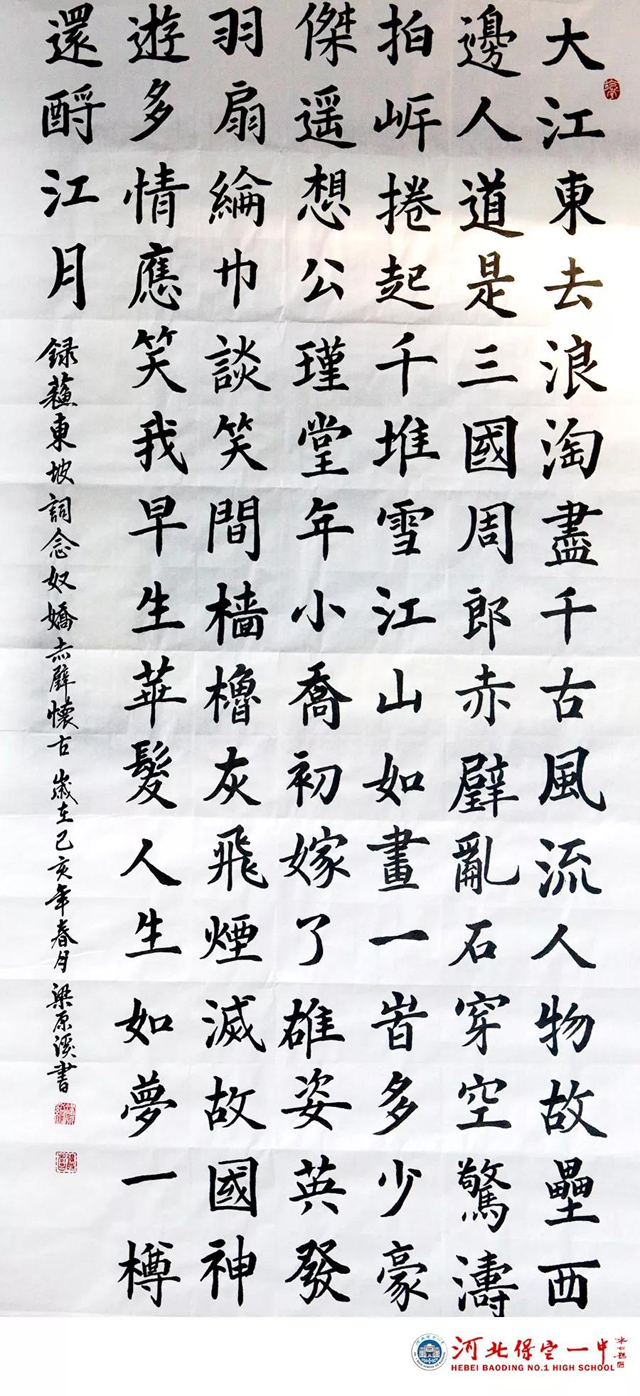 大江東去浪淘盡千古風流人物故壘西
邊人道是三國周郎赤壁亂石穿空驚濤
拍岸捲起千堆雪江山如畫一旹多少豪
傑遥想公瑾堂年小喬初嫁了雄姿英發
羽扇綸巾談笑間檣櫓灰飛煙滅故國神
遊多情應笑我早生華髮人生如夢一樽
還酹江月
録蘇東坡詞念奴嬌赤壁懷古 歲在己亥年春月 梁原溪書
河北保定一中
HEBEI BAODING NO.1 HIGH SCHOOL